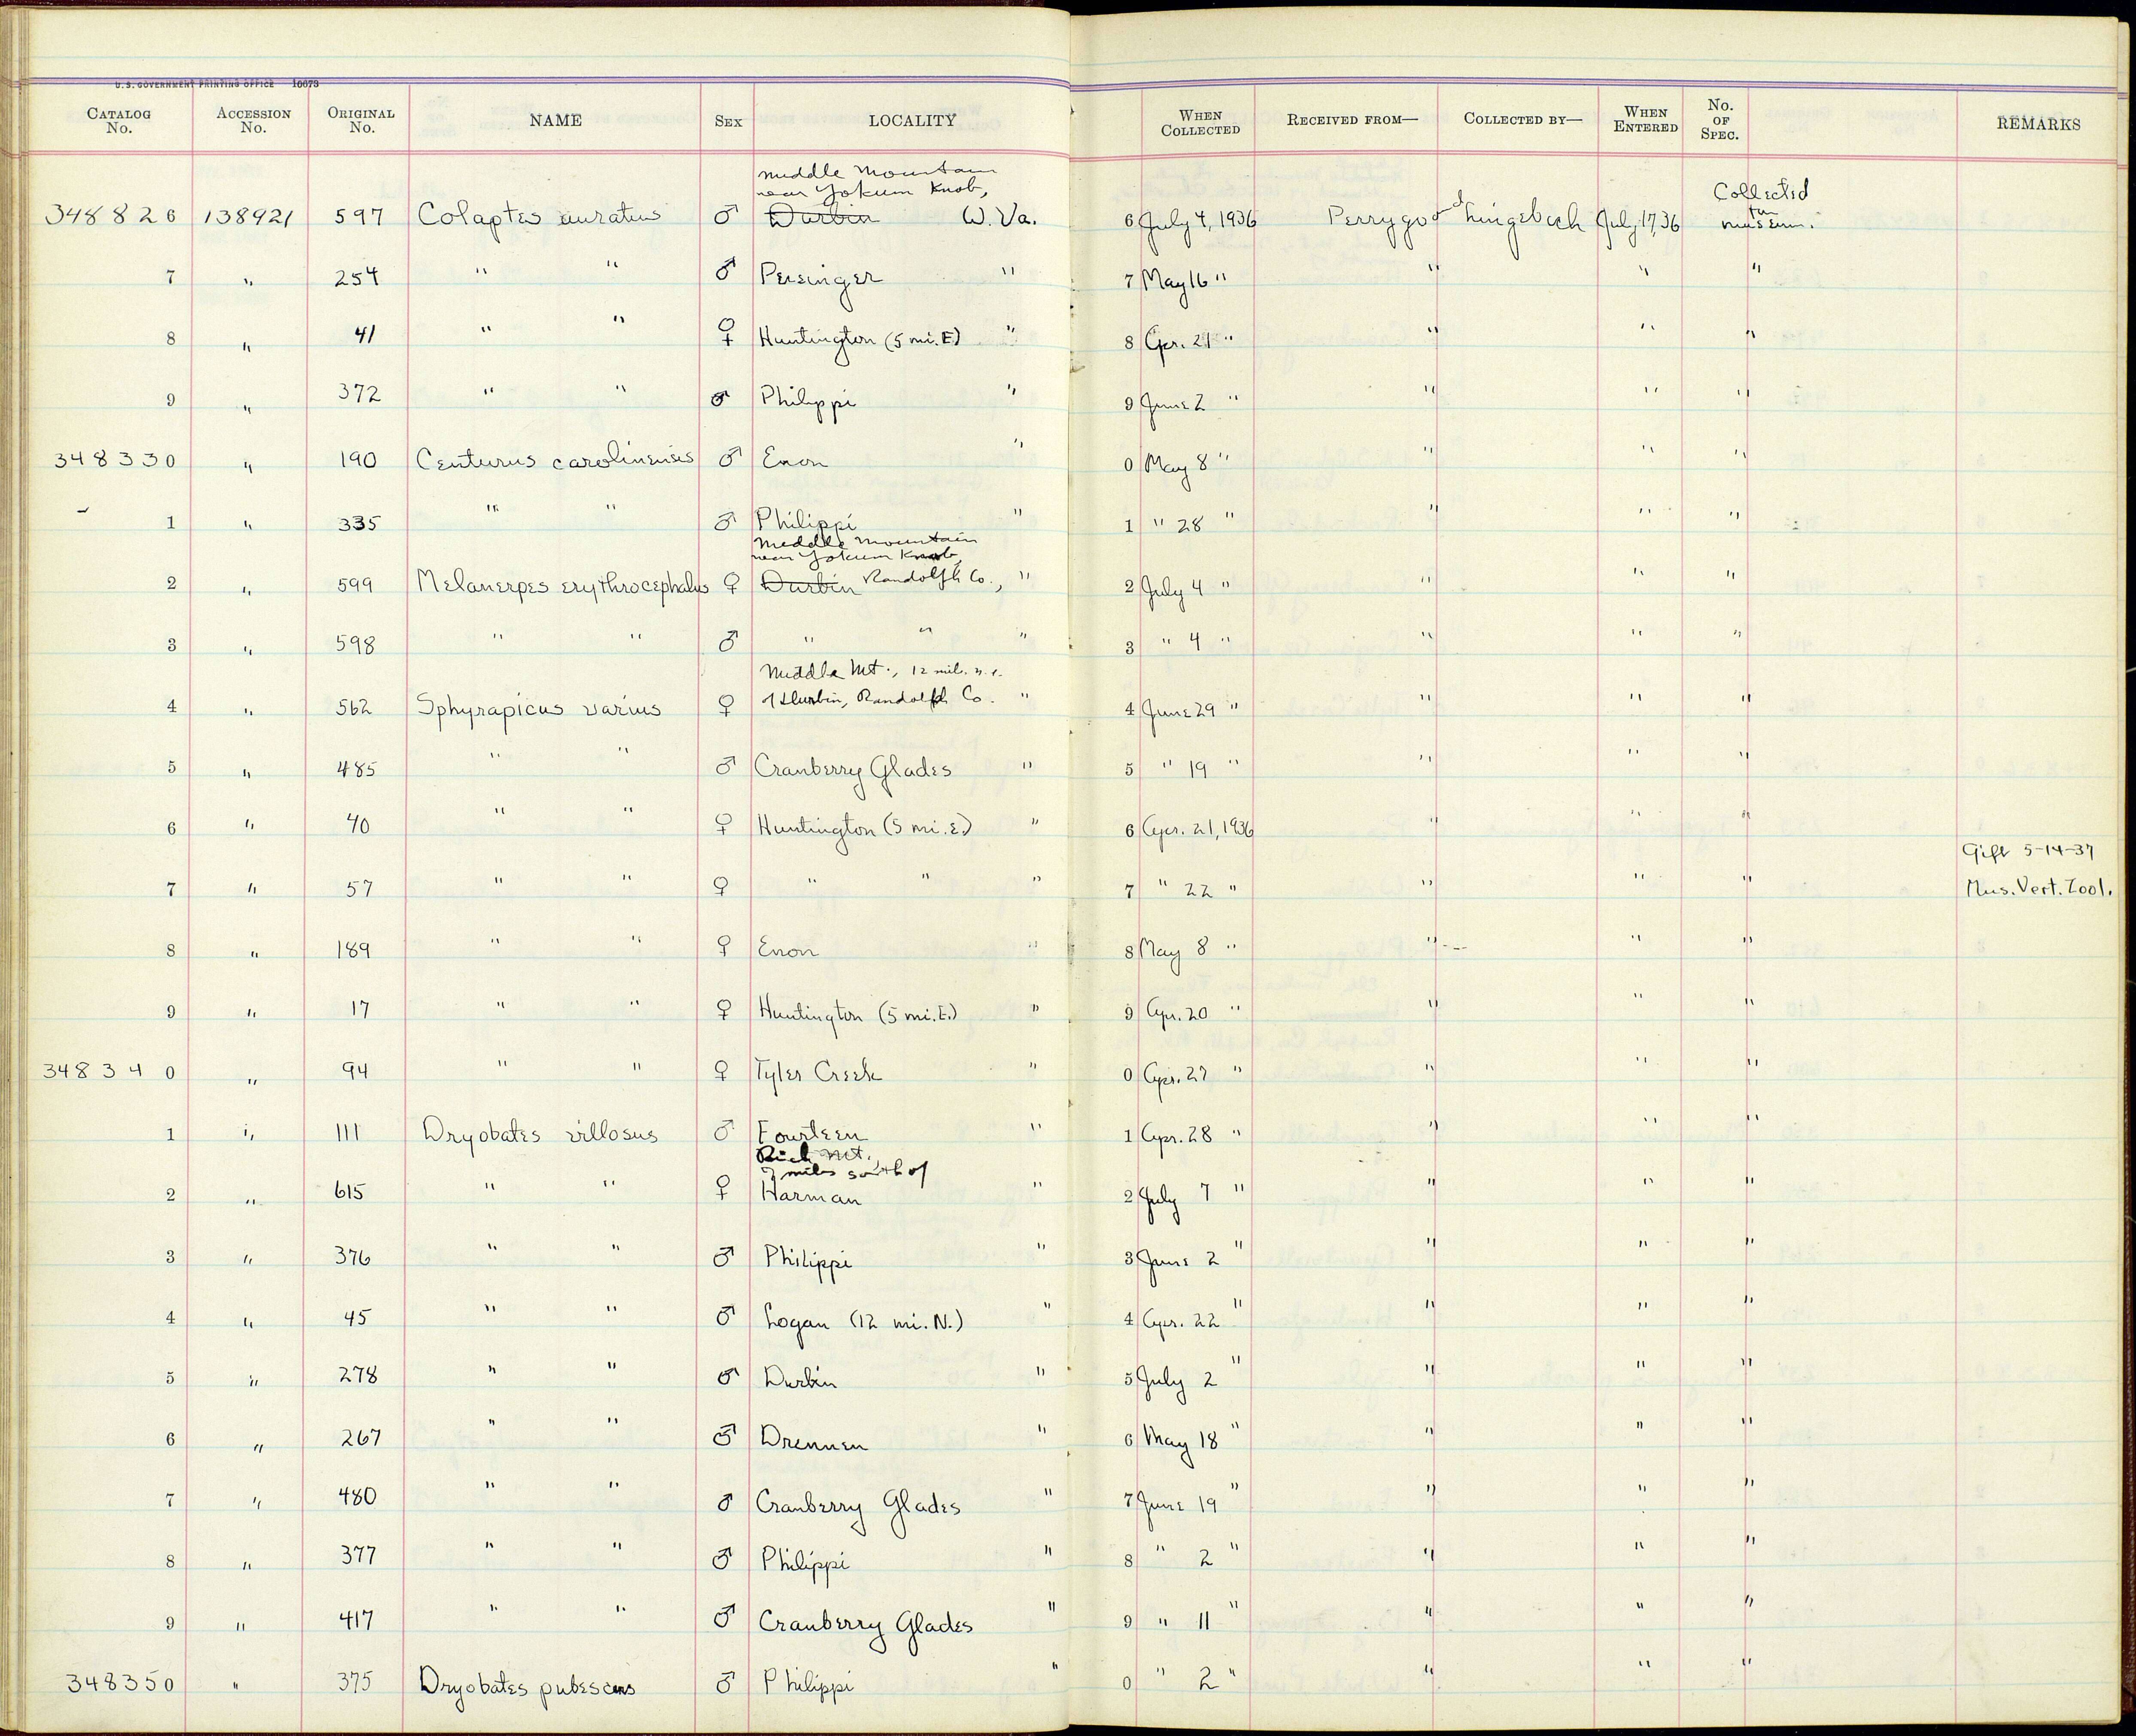 U.S. GOVERNMENT PRINTING OFFICE 10673
CATALOG No. ACCESSION No. ORIGINAL No. NAME SEX LOCALITY WHEN COLLECTED RECEIVED FROM— COLLECTED BY— WHEN ENTERED No. OF SPEC. REMARKS
Middle Mountain
near Yokum Knob,
348826 138921 597 Colaptes auratus ♂ Durbin W. Va. 6 July 4, 1936 Perrygo and Lingebach July 17, 36 Collected for museum.
7 " 254 " " ♂ Persinger " 7 May 16 " " " "
8 " 41 " " ♀ Huntington (5 mi. E) " 8 Apr. 21 " " " "
9 " 372 " " ♂ Philippi " 9 June 2 " " " "
348330 " 190 Centurus carolinensis ♂ Enon " 0 May 8 " " " "
1 " 335 " " ♂ Philippi " 1 " 28 " " " "
Middle Mountain
near Yokum Knob,
2 " 599 Melanerpes erythrocephalus ♀ Durbin Randolph Co., " 2 July 4 " " " "
3 " 598 " " ♂ " " " 3 " 4 " " " "
Middle Mt., 12 mil. n.e.
4 " 562 Sphyrapicus varius ♀ of Durbin, Randolph Co. " 4 June 29 " " " "
5 " 485 " " ♂ Cranberry Glades " 5 " 19 " " " "
6 " 40 " " ♀ Huntington (5 mi. E.) " 6 Apr. 21, 1936 " " "
Gift 5-14-37
7 " 57 " " ♀ " " " 7 " 22 " " " " Mus. Vert. Zool.
8 " 189 " " ♀ Enon " 8 May 8 " " " "
9 " 17 " " ♀ Huntington (5 mi. E.) " 9 Apr. 20 " " " "
348340 " 94 " " ♀ Tyler Creek " 0 Apr. 27 " " " "
1 " 111 Dryobates villosus ♂ Fourteen " 1 Apr. 28 " " " "
Rich Mt.,
7 miles south of
2 " 615 " " ♀ Harman " 2 July 7 " " " "
3 " 376 " " ♂ Philippi " 3 June 2 " " " "
4 " 45 " " ♂ Logan (12 mi. N.) " 4 Apr. 22 " " " "
5 " 278 " " ♂ Durbin " 5 July 2 " " " "
6 " 267 " " ♂ Drennen " 6 May 18 " " " "
7 " 480 " " ♂ Cranberry Glades " 7 June 19 " " " "
8 " 377 " " ♂ Philippi " 8 " 2 " " " "
9 " 417 " " ♂ Cranberry Glades " 9 " 11 " " " "
348350 " 375 Dryobates pubescens ♂ Philippi " 0 " 2 " " " "